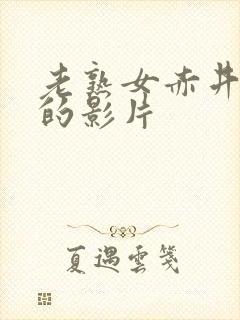 老熟女赤井
的影片
夏遇雲箋